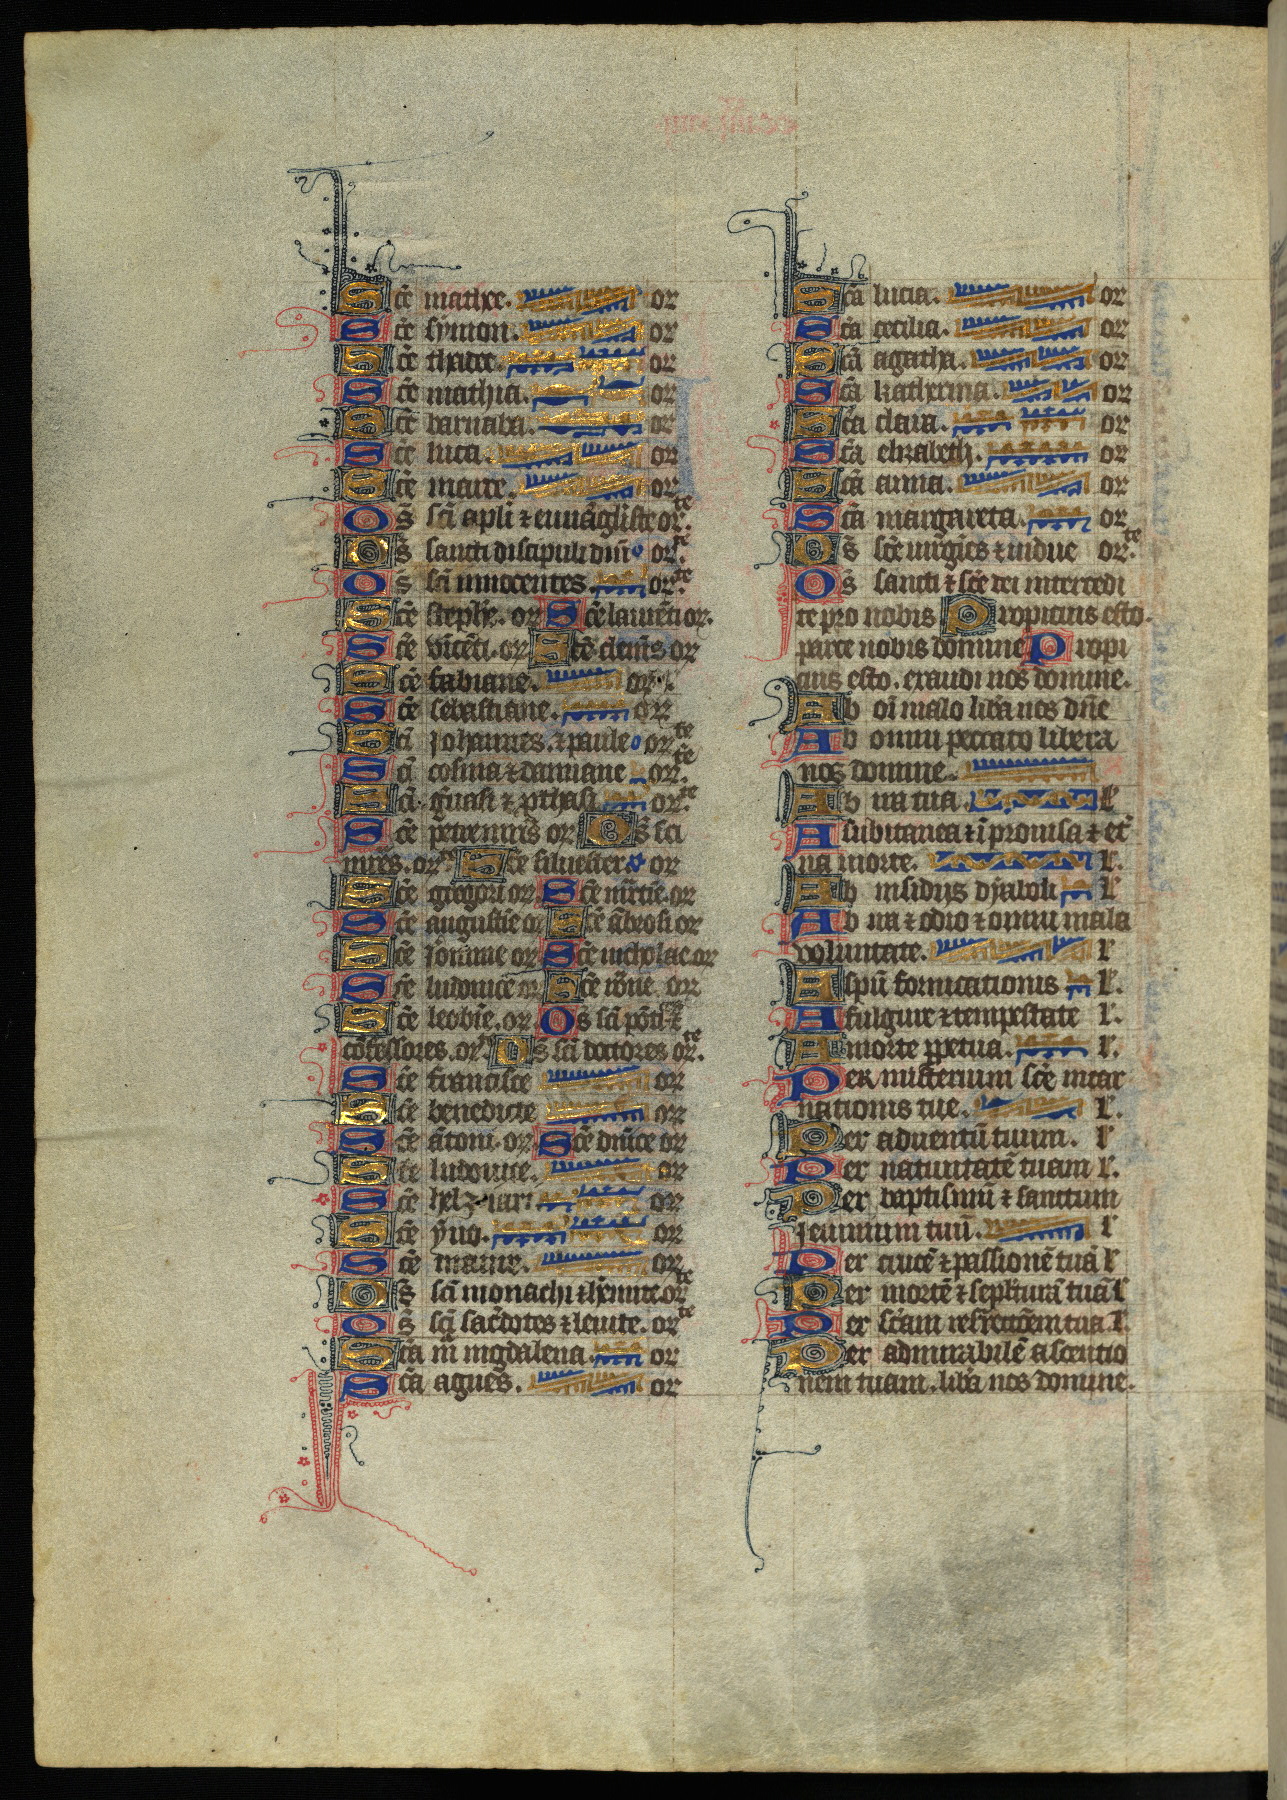 Scē mathee. or
Scē symon. or
Scē thadee. or
Scē mathia. or
Scē barnaba. or
Scē luca. or
Scē marce. or
Os̄ sc̄i apl̄i ⁊ euuāgliste or.te
Os̄ sancti discipuli dn̄i or.te
Os̄ sc̄i innocentes. or.te
Scē stephē. or Scē laurēti or.
Scē vīcēti. or Scē clemēs or
Scē fabiane. or
Scē sebastiane. or
Scī Johannes. ⁊ paule or.te
Scī cosma ⁊ damiane or.te
Scī. gūasi ⁊ prthasi or.te
Scē petre mr̄is or Os̄ sc̄i
mr̄es. or.te Scē siluester or
Scē gregori or Scē mr̄tie. or
Scē augustīe or Scē ābrosi or
Scē Jonime or Scē nicholae or
Scē ludouice or Scē
Scē or Os sc̄i pōti. ⁊
cōfessores. or.te Os̄ sc̄i doctores or.te
Scē francisce or
Scē benedicte or
Scē ātoni. or Scē dn̄ice or
Scē ludouice. or
Scē helziari or
Scē yuo. or
Scē maure. or
Os̄ sc̄i monachi ⁊ hr̄mite or.te
Os̄ sc̄i sac̄dotes ⁊ leuite. or.te
Scā m̄ mgdalena or
Scā agnes. or
Scā lucia. or
Scā cecilia. or
Scā agatha. or
Scā katherina. or
Scā clara. or
Scā elizabeth. or
Scā anna. or
Scā margareta. or
Os̄ scē uirgīes ⁊ uidue or.te
Os̄ sancti ⁊ scē dei intercedi
te pro nobis Propitius esto.
parce nobis domine Propi
cius esto. exaudi nos domine.
Ab oī malo libā nos dn̄e
Ab omni peccato libera
nos domine.
Ab ira tua. l'
A subitanea ⁊ īprouisa ⁊ et̄
na morte. l'.
Ab insidijs dyaboli l'
Ab ira ⁊ odio ⁊ omni mala
voluntate. l'
A spū fornicationis l'.
A fulgure ⁊ tempestate l'.
A morte ꝑpetua. l'.
Per misterium scē incar
nationis tue. l'.
Per aduentū tuum. l'
Per natiuitatē tuam l'.
Per baptismū ⁊ sanctum
Jeiunium tuū. l'
Per crucē ⁊ passionē tuā l'
Per mortē ⁊ sepl̄turā tuā l'
Per sc̄am resr̄ectōem tuā. l'.
Per admirabilē ascentio
nem tuam. libā nos domine.